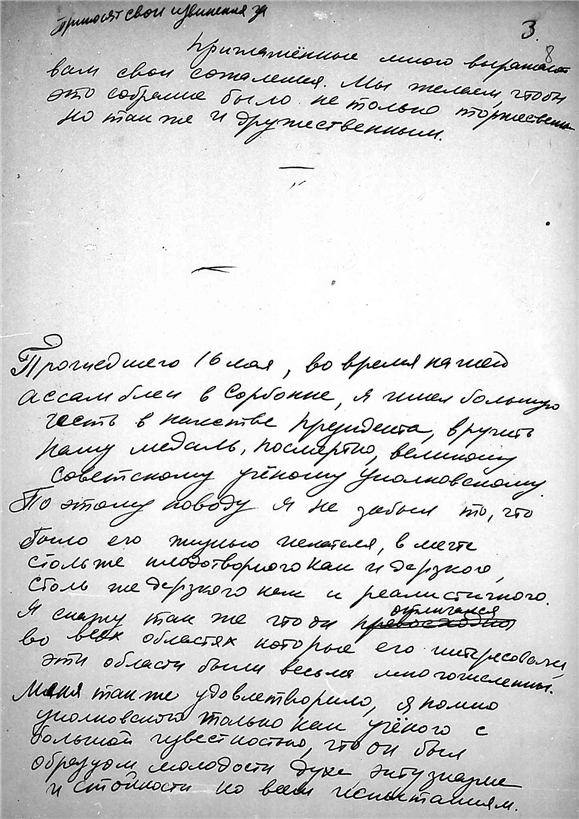 Приносят свои извинения за
3.
8
приглашённые много выражают
вам свои сожаления. Мы желаем, чтобы
это собрание было не только торжествен
но также и дружественным.
Прошедшего 16 мая, во время нашей
ассамблеи в Сорбонне, я имел большую
честь в качестве президента, вручить
нашу медаль, посмертно, великому
советскому учёному Циолковскому.
По этому поводу я не забыл то, что
было его жизнью искателя, в мечте
столь же плодотворного как и дерзкого,
столь же дерзкого как и реалистичного.
Я скажу так же что он превосходно отличался
во всех областях которые его интересовали,
эти области были весьма многочисленны.
Меня также удовлетворило, я помню
Циолковского только как учёного с
большой известностью, что он был
образцом молодости духа энтузиазма
и стойкости ко всем испытаниям.